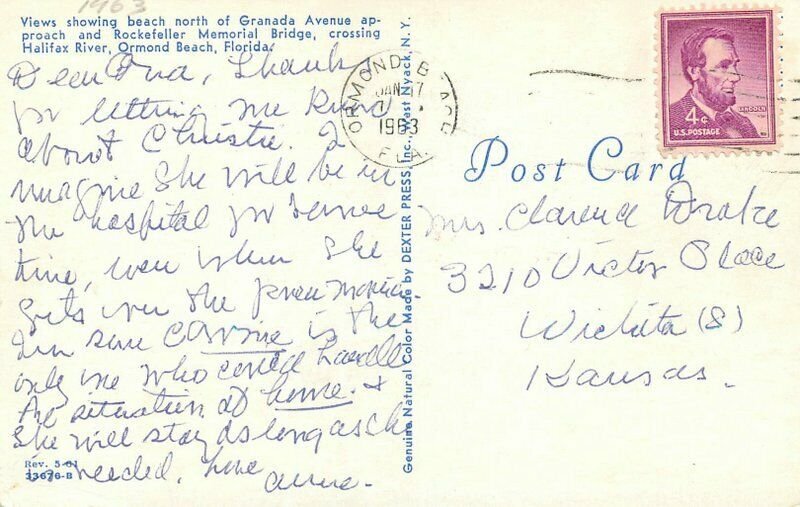 1963
Views showing beach north of Granada Avenue ap-
proach and Rockefeller Memorial Bridge, crossing
Halifax River, Ormond Beach, Florida.
Dear Ona, Thanks
for letting me know
about Christie. I
imagine she will be in
the hospital for some
time, even when she
gets over the pneumonia.
I'm sure Corrine is the
only one who could handle
the situation at home. &
she will stay as long as she
is needed, Love
Anne.
Rev. 5-61
33676-B
Genuine Natural Color Made by DEXTER PRESS, Inc. West Nyack, N. Y.
ORMOND BEACH
JAN 7
1963
FLA
4¢
LINCOLN
U.S. POSTAGE
Post Card
Mrs. Clarence Drake
3210 Victor Place
Wichita (8)
Kansas.